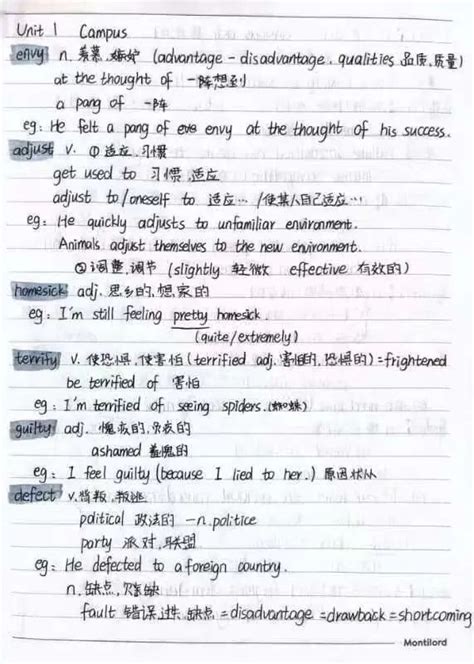 Unit 1 Campus
envy n. 羡慕.嫉妒 (advantage - disadvantage. qualities 品质.质量)
at the thought of 一想到
a pang of 一阵
eg: He felt a pang of envy at the thought of his success.
adjust v. ①适应.习惯
get used to 习惯.适应
adjust to/oneself to 适应…/使某人自己适应…
eg: He quickly adjusts to unfamiliar environment.
Animals adjust themselves to the new environment.
②调整.调节 (slightly 轻微 effective 有效的)
homesick adj. 思乡的.想家的
eg: I'm still feeling pretty homesick
(quite/extremely)
terrify v. 使恐惧.使害怕 (terrified adj. 害怕的.恐惧的) =frightened
be terrified of 害怕
eg: I'm terrified of seeing spiders. (蜘蛛)
guilty adj. 愧疚的.负疚的
ashamed 羞愧的
eg: I feel guilty (because I lied to her.) 原因状从
defect v. 背叛.叛逃
political 政法的 -n. politice
party 派对.联盟
eg: He defected to a foreign country.
n. 缺点.欠缺
fault 错误.过.缺点 = disadvantage = drawback = shortcoming
Montilord